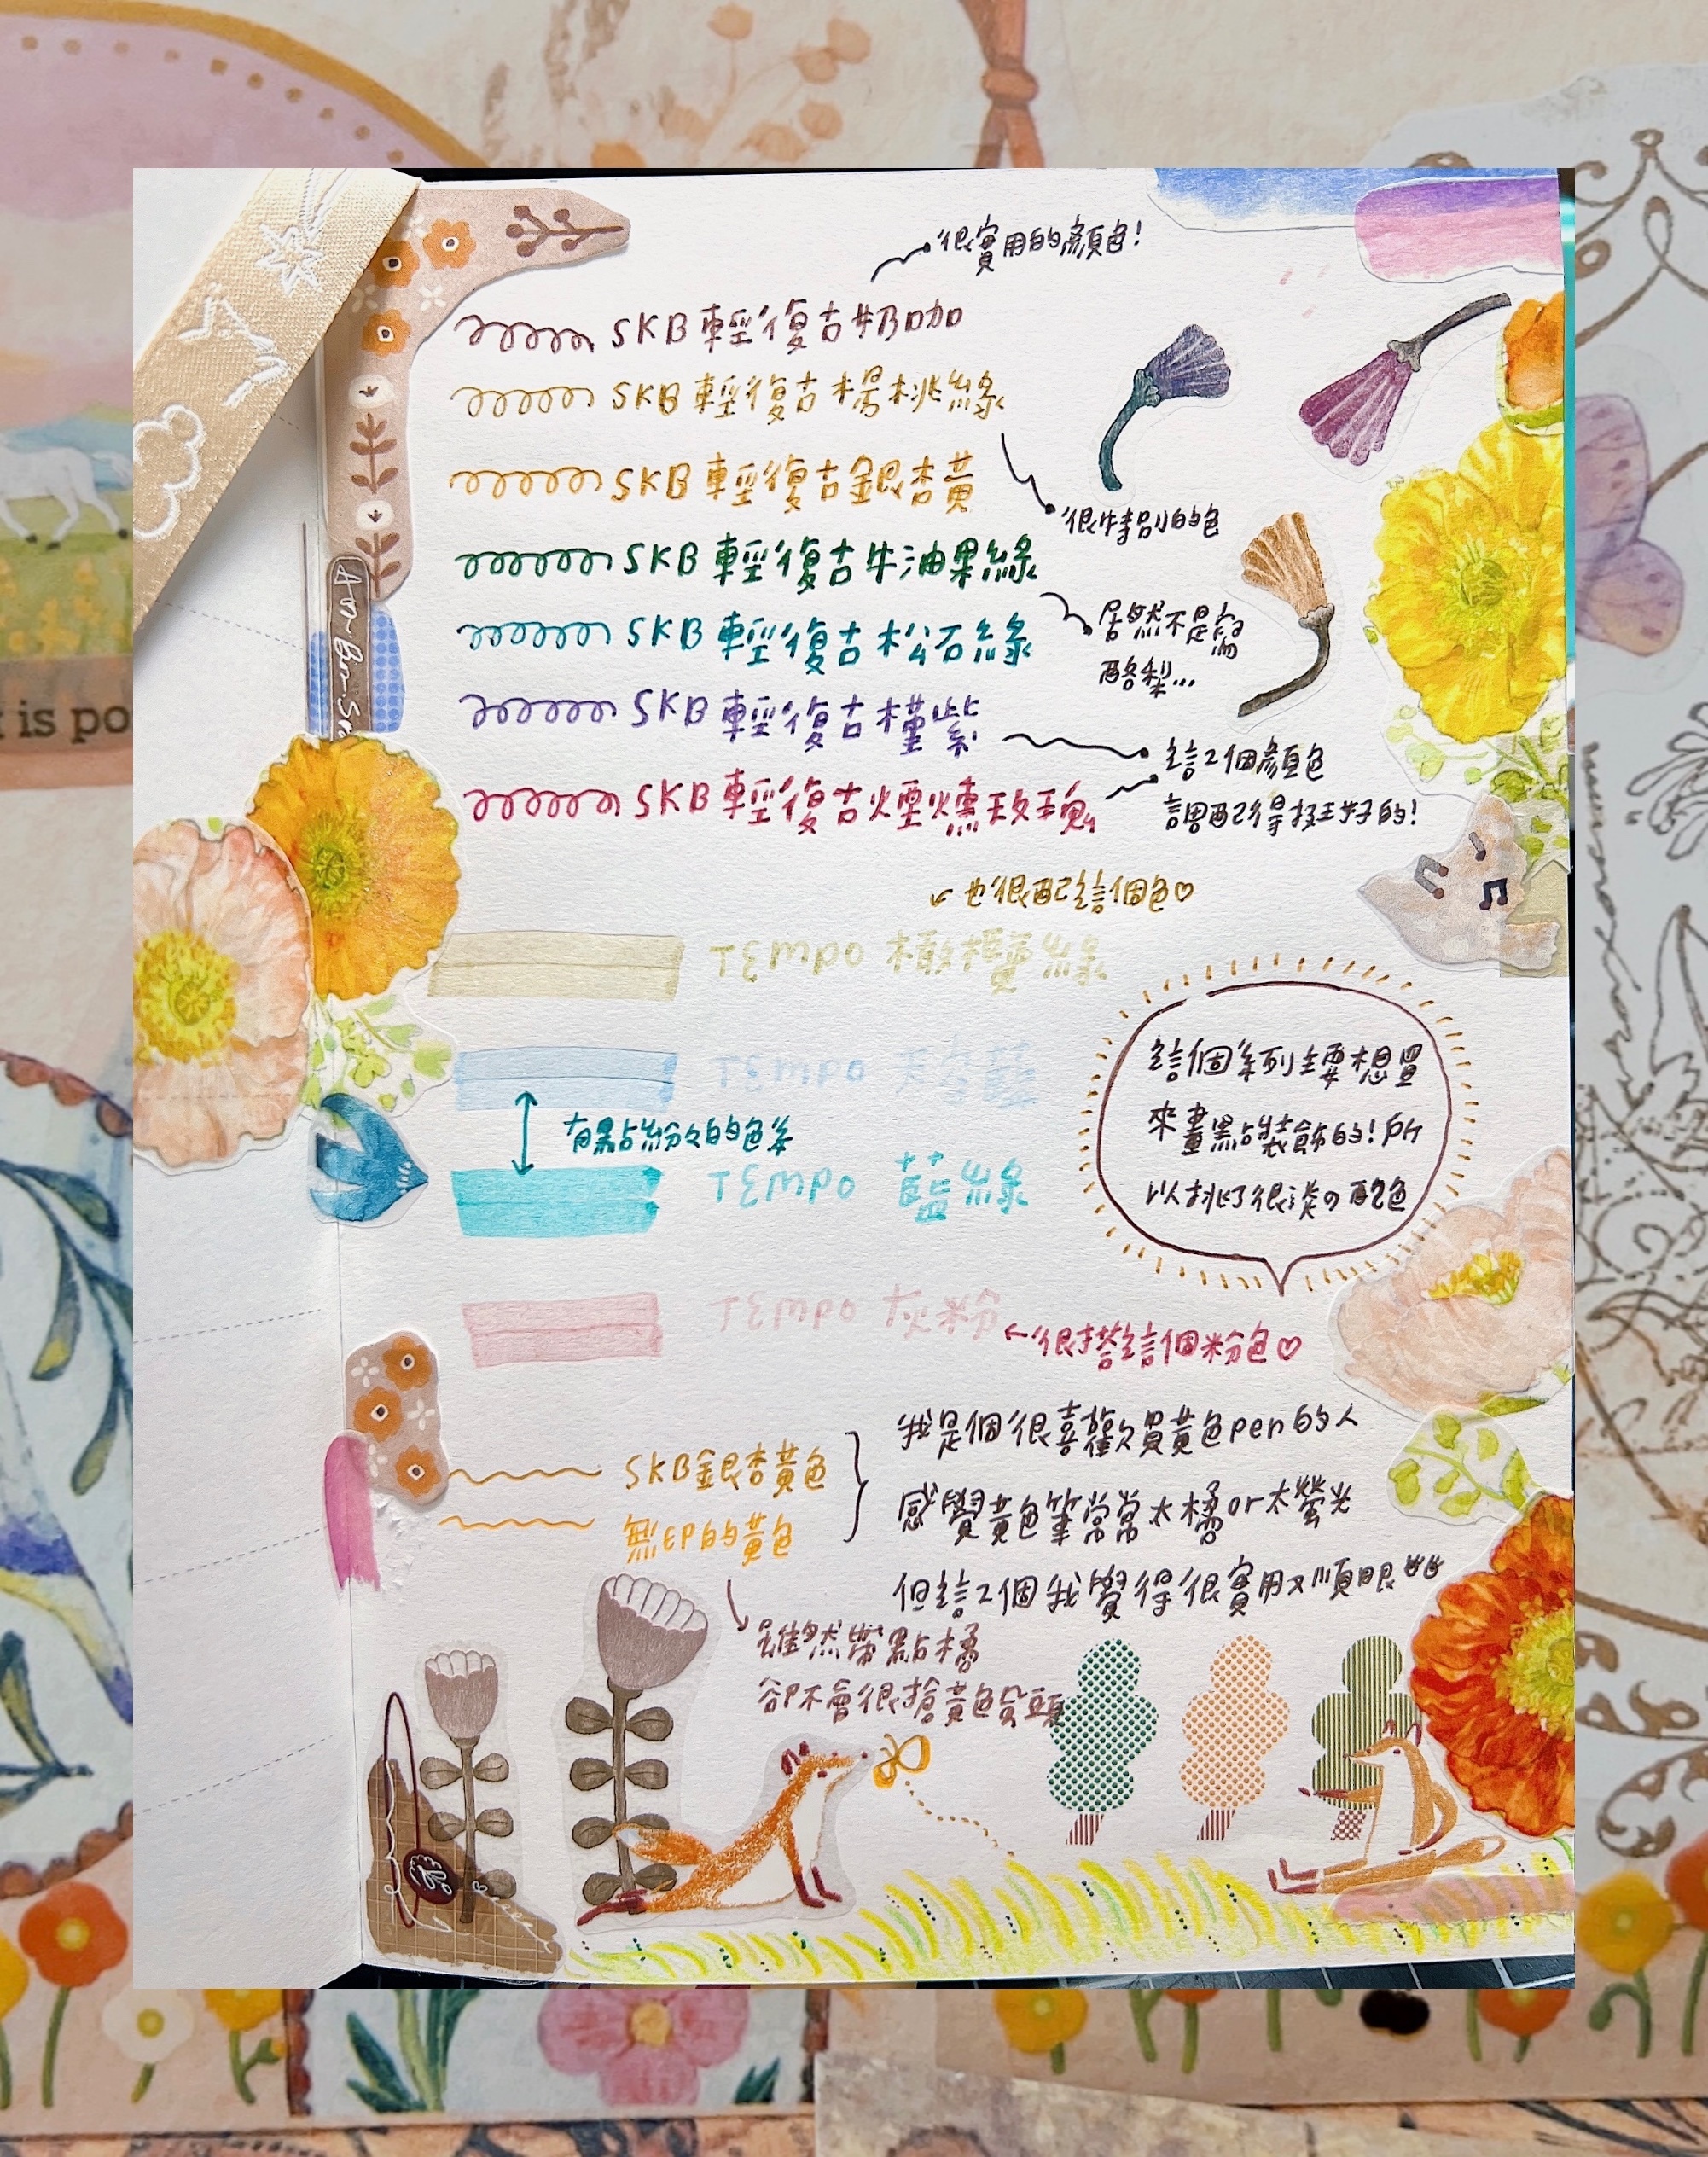 很實用的顏色!
SKB 輕復古奶咖
SKB 輕復古楊桃綠
SKB 輕復古銀杏黃
很特別的色
SKB 輕復古牛油果綠
居然不是寫
酪梨...
SKB 輕復古松石綠
SKB 輕復古槿紫
SKB 輕復古煙燻玫瑰
這2個顏色
調配得挺好的!
is po
也很配這個色♡
TEMPO 橄欖綠
TEMPO 天空藍
有點粉粉的色系
TEMPO 藍綠
這個系列主要想買
來畫點裝飾的!所
以挑了很淡の配色
TEMPO 灰粉
←很搭這個粉色♡
SKB銀杏黃色
無EP的黃色
我是個很喜歡買黃色pen的人
感覺黃色筆常常太橘or太螢光
但這2個我覺得很實用又順眼
雖然帶點橘
卻不會很搶黃色兒頭